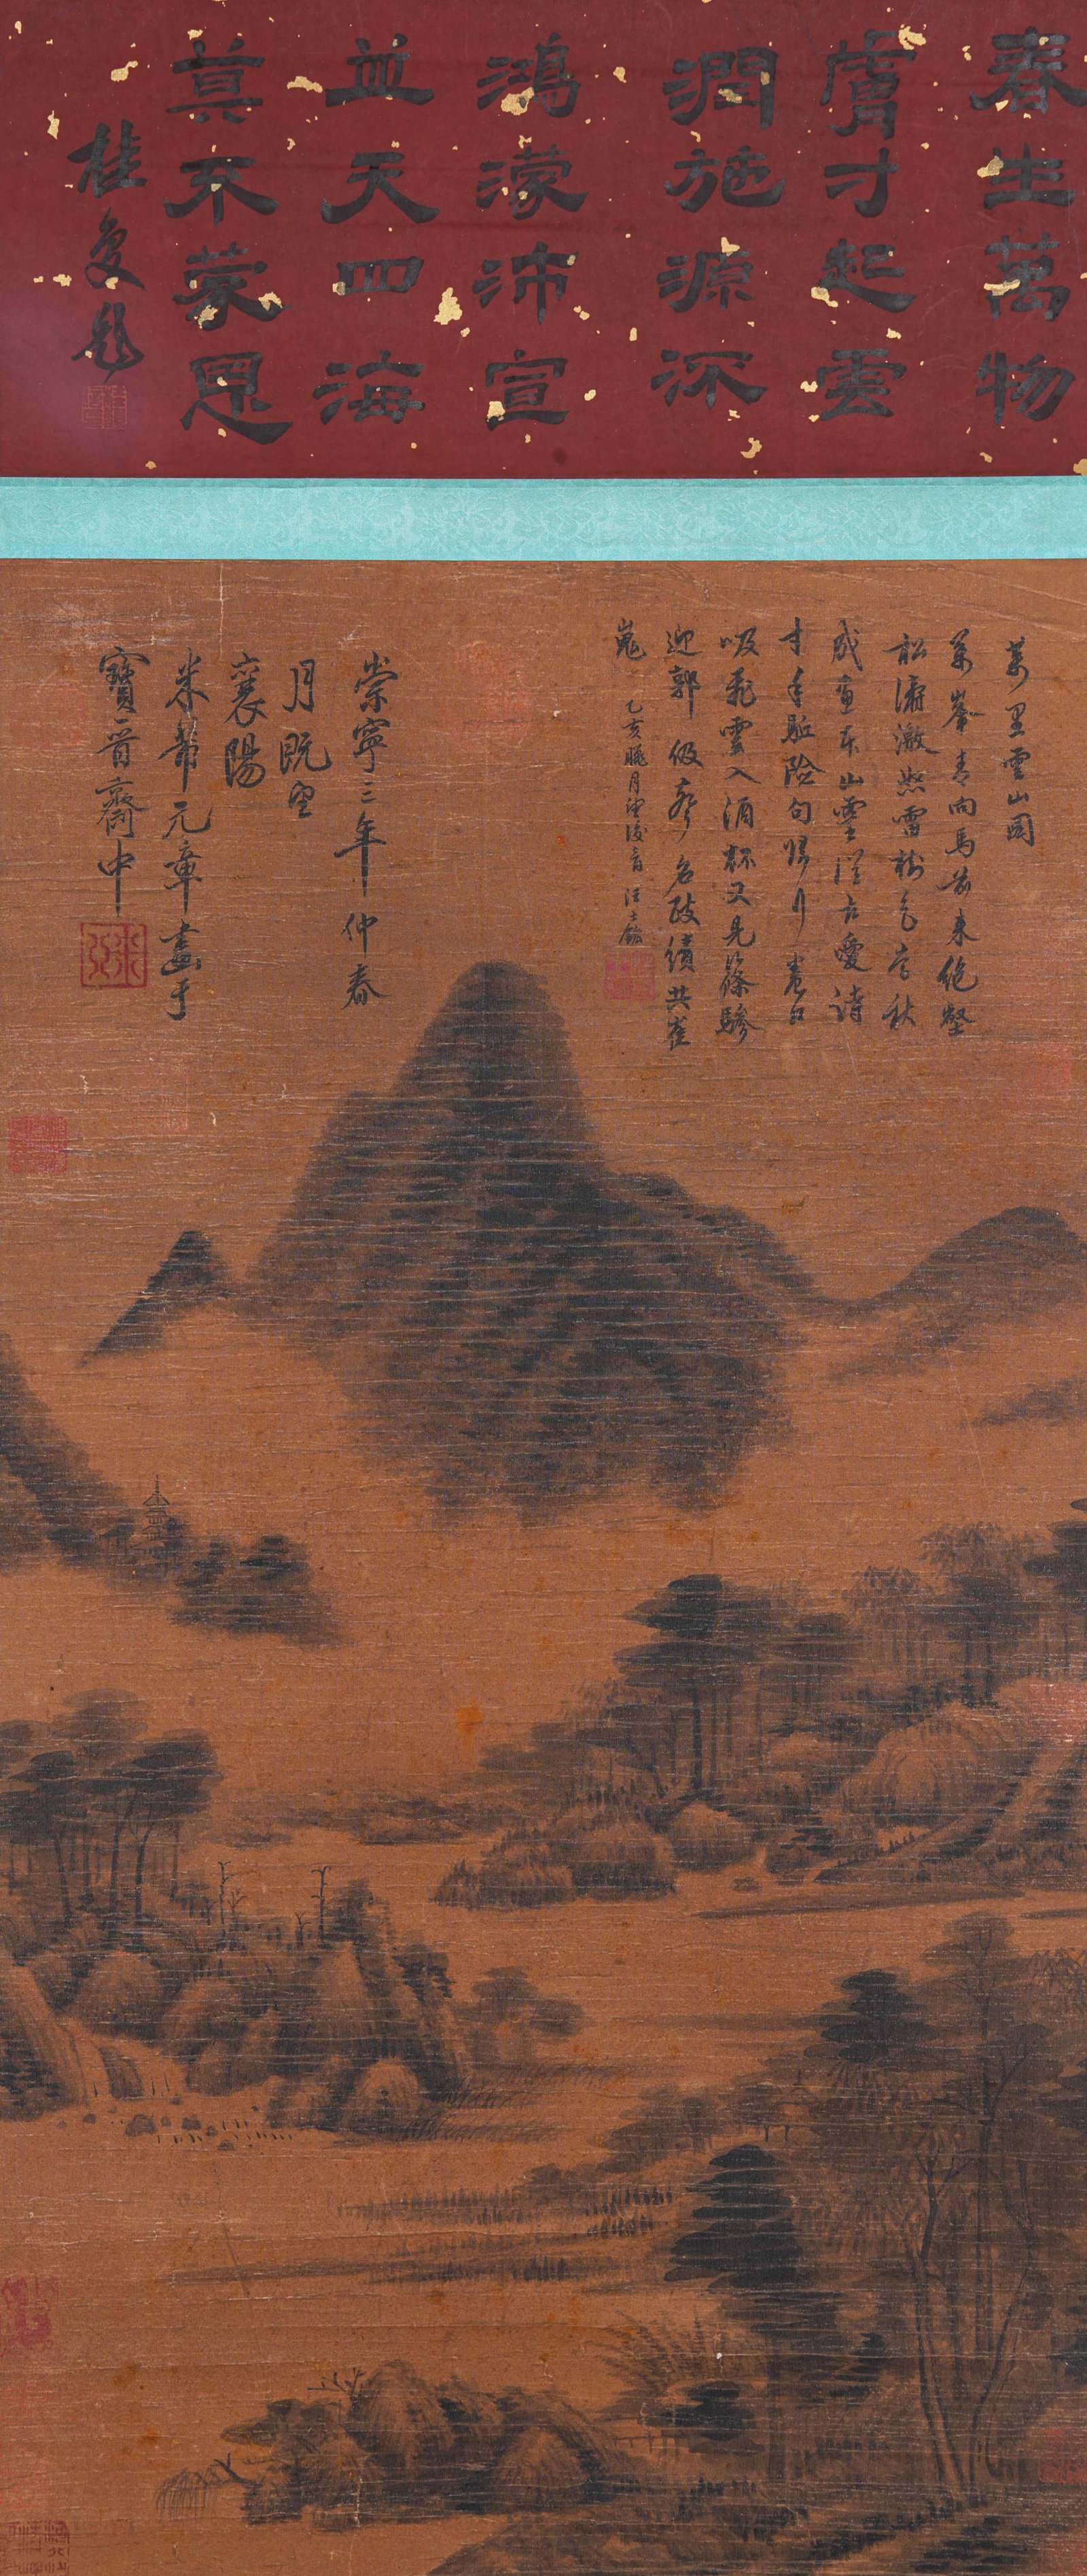 春生萬物
膚寸起雲
潤施源深
鴻濛沛宣
並天四海
莫不蒙恩
桂馥題
萬里雲山圖
萬峯青向馬前來絶壑
松濤激怒雷樹色空秋
成畫本山靈從古愛詩
才手
險句
吸飛雲入酒杯又見篠驂
迎郭伋奔名政績共崔
嵬
乙亥臘月望後一日汪士鋐
崇寧三年仲春
月既望
襄陽
米芾元章畫于
寶晉齋中